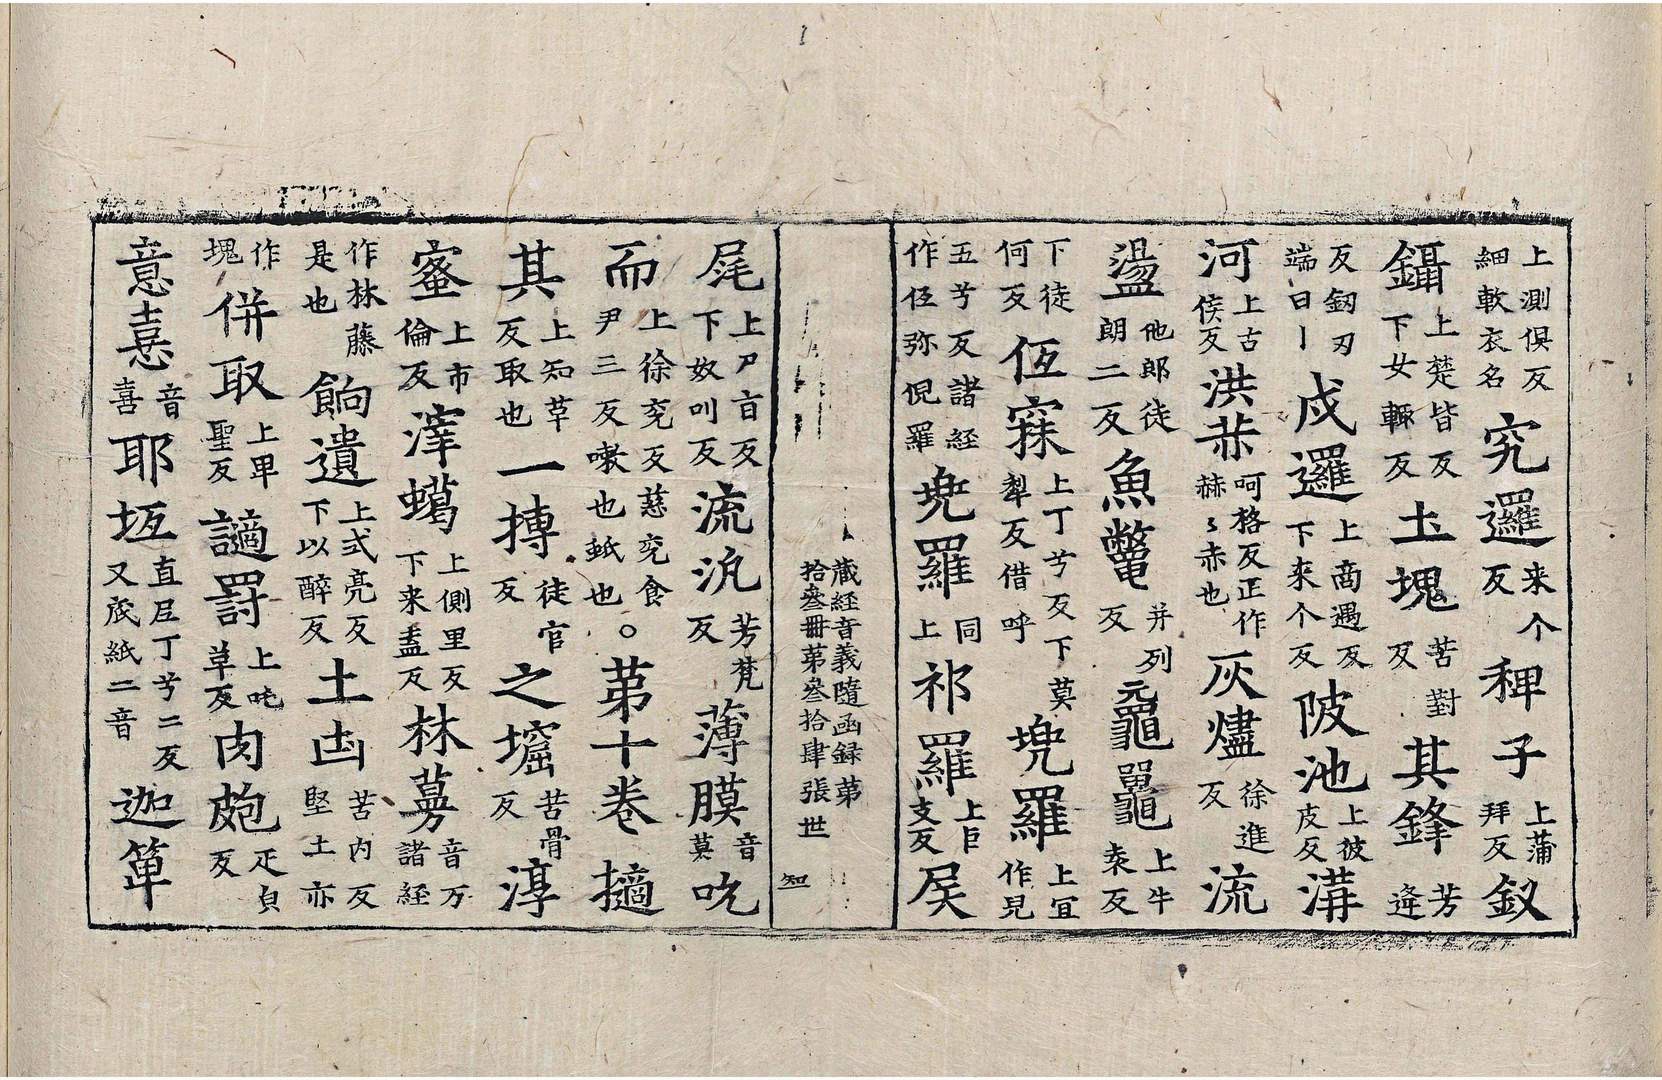 上測俱反細軟衣名究邏来个反稗子上蒲拜反釵
鑷上楚皆反下女輒反土塊苦對反其鋒芳逄
反釰刃端曰丨戍邏上商遇反下来个反陂池上彼皮反溝
河上古侯反洪恭呵格反正作赫赫赤也灰燼徐進反流
盪他郎徒朗二反魚鼈并列反黿鼉上牛袁反
下徒何反伍寐上丁兮反下莫犁反借呼兠羅上冝作兒
五兮反諸經作伍弥倪羅兠羅同上祁羅上巨支反𡱁
藏経音義隨函録第拾叄冊第叄拾肆張世知
㞙上尸旨反下奴叫反流汎芳梵反薄膜音莫吮
而上徐兖反慈兖食尹三反嗽也䑛也。第十卷擿
其上知革反取也一摶徒官反之堀苦骨反淳
蜜上市倫反滓蠍上側里反下来盍反林蒡音万諸經
作林藤是也餉遺上式亮反下以醉反土凷苦内反堅土亦
作塊併取上畀聖反謫罰上吒革反肉皰疋皃反
意憙音喜耶坻直尼丁兮二反又底紙二音迦箄